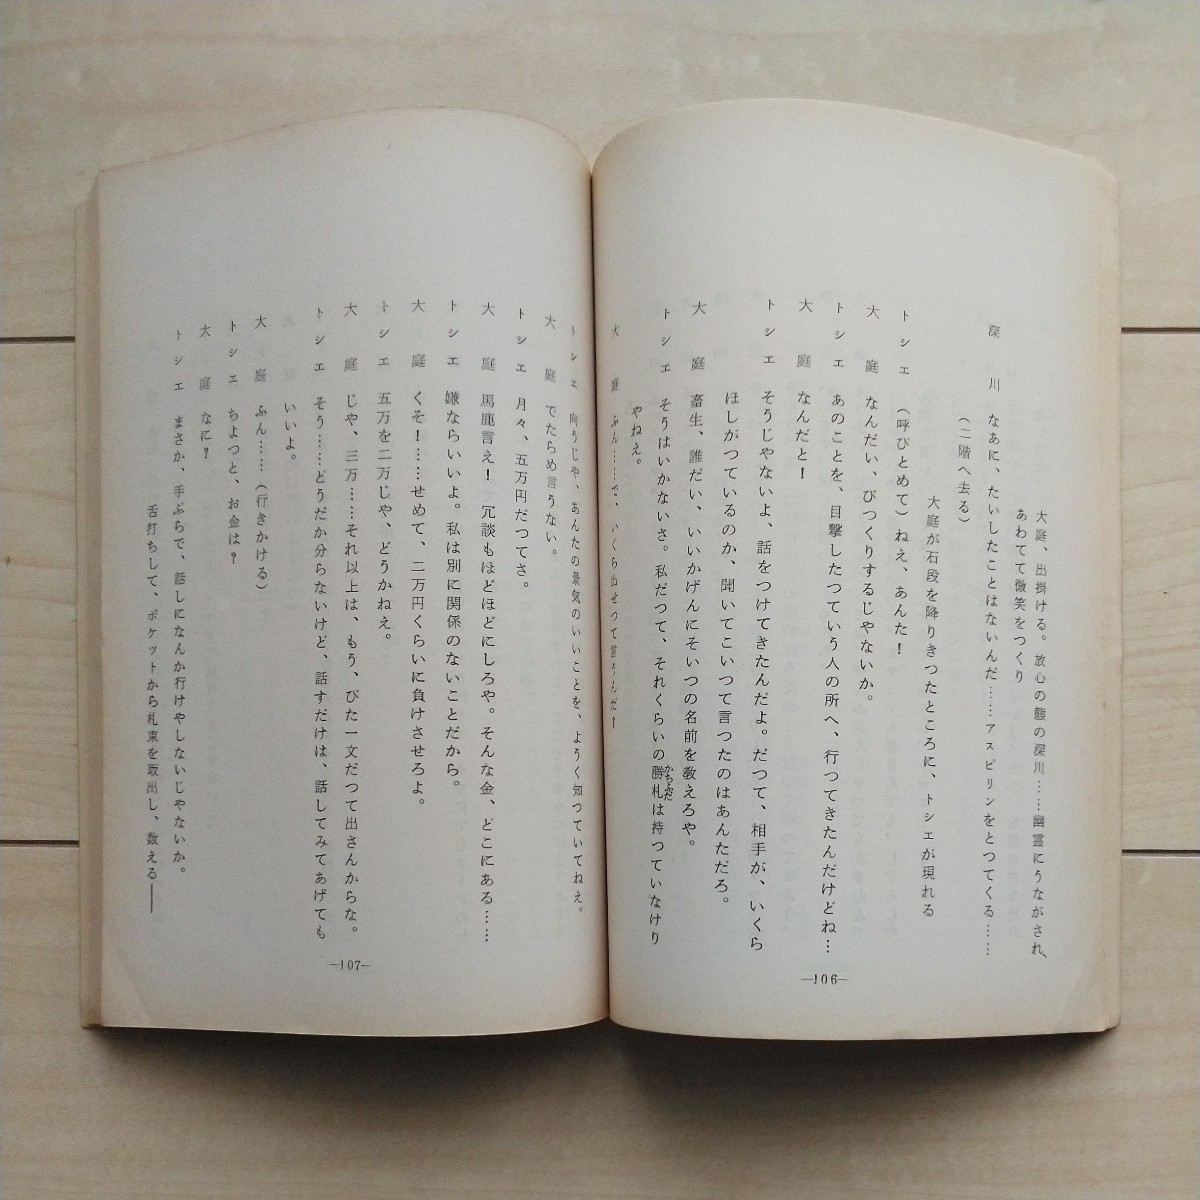 大庭、出掛ける。放心の態の深川……幽霊にうながされ、
あわてて微笑をつくり
深川　なあに、たいしたことはないんだ……アスピリンをとつてくる……
（二階へ去る）
大庭が石段を降りきつたところに、トシエが現れる
トシエ　（呼びとめて）ねえ、あんた！
大庭　なんだい、びつくりするじやないか。
トシエ　あのことを、目撃したつていう人の所へ、行つてきたんだけどね…
大庭　なんだと！
トシエ　そうじやないよ、話をつけてきたんだよ。だつて、相手が、いくら
ほしがつているのか、聞いてこいつて言つたのはあんただろ。
大庭　畜生、誰だい、いいかげんにそいつの名前を教えろや。
トシエ　そうはいかないさ。私だつて、それくらいの勝札は持つていなけり
かちふだ
やねえ。
大庭　ふん……で、いくら出せつて言うんだ？
—106—
トシエ　向うじや、あんたの景気のいいことを、ようく知つていてねえ。
大庭　でたらめ言うない。
トシエ　月々、五万円だつてさ。
大庭　馬鹿言え！　冗談もほどほどにしろや。そんな金、どこにある……
トシエ　嫌ならいいよ。私は別に関係のないことだから。
大庭　くそ！……せめて、二万円くらいに負けさせろよ。
トシエ　五万を二万じや、どうかねえ。
大庭　じや、三万……それ以上は、もう、びた一文だつて出さんからな。
トシエ　そう……どうだか分らないけど、話すだけは、話してみてあげても
いいよ。
大庭　ふん……（行きかける）
トシエ　ちよつと、お金は？
大庭　なに？
トシエ　まさか、手ぶらで、話しになんか行けやしないじやないか。
舌打ちして、ポケットから札束を取出し、数える——
—107—